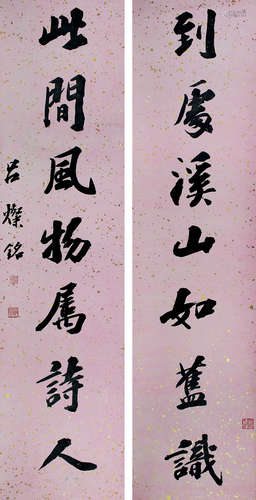 到處溪山如舊識
此間風物属詩人
呂燦銘